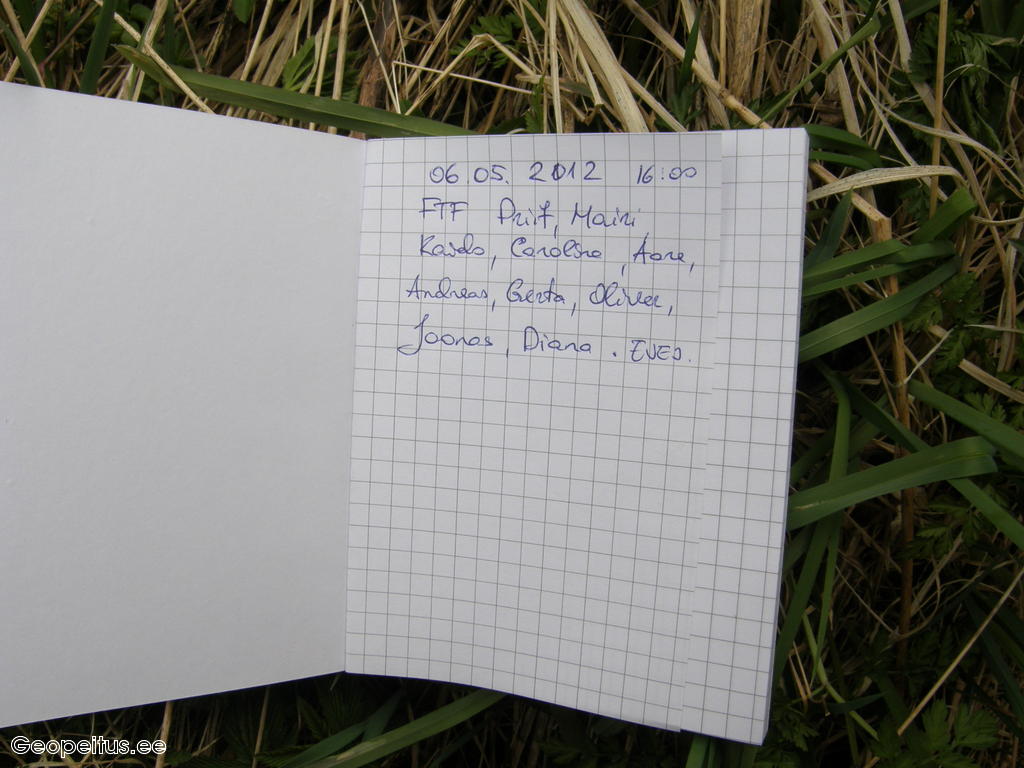 06.05.2012 16:00
FTF Priit, Mairi,
Kardo, Caroline, Aare,
Andreas, Gerta, Oliver,
Joonas, Diana.
Geopeitus.ee